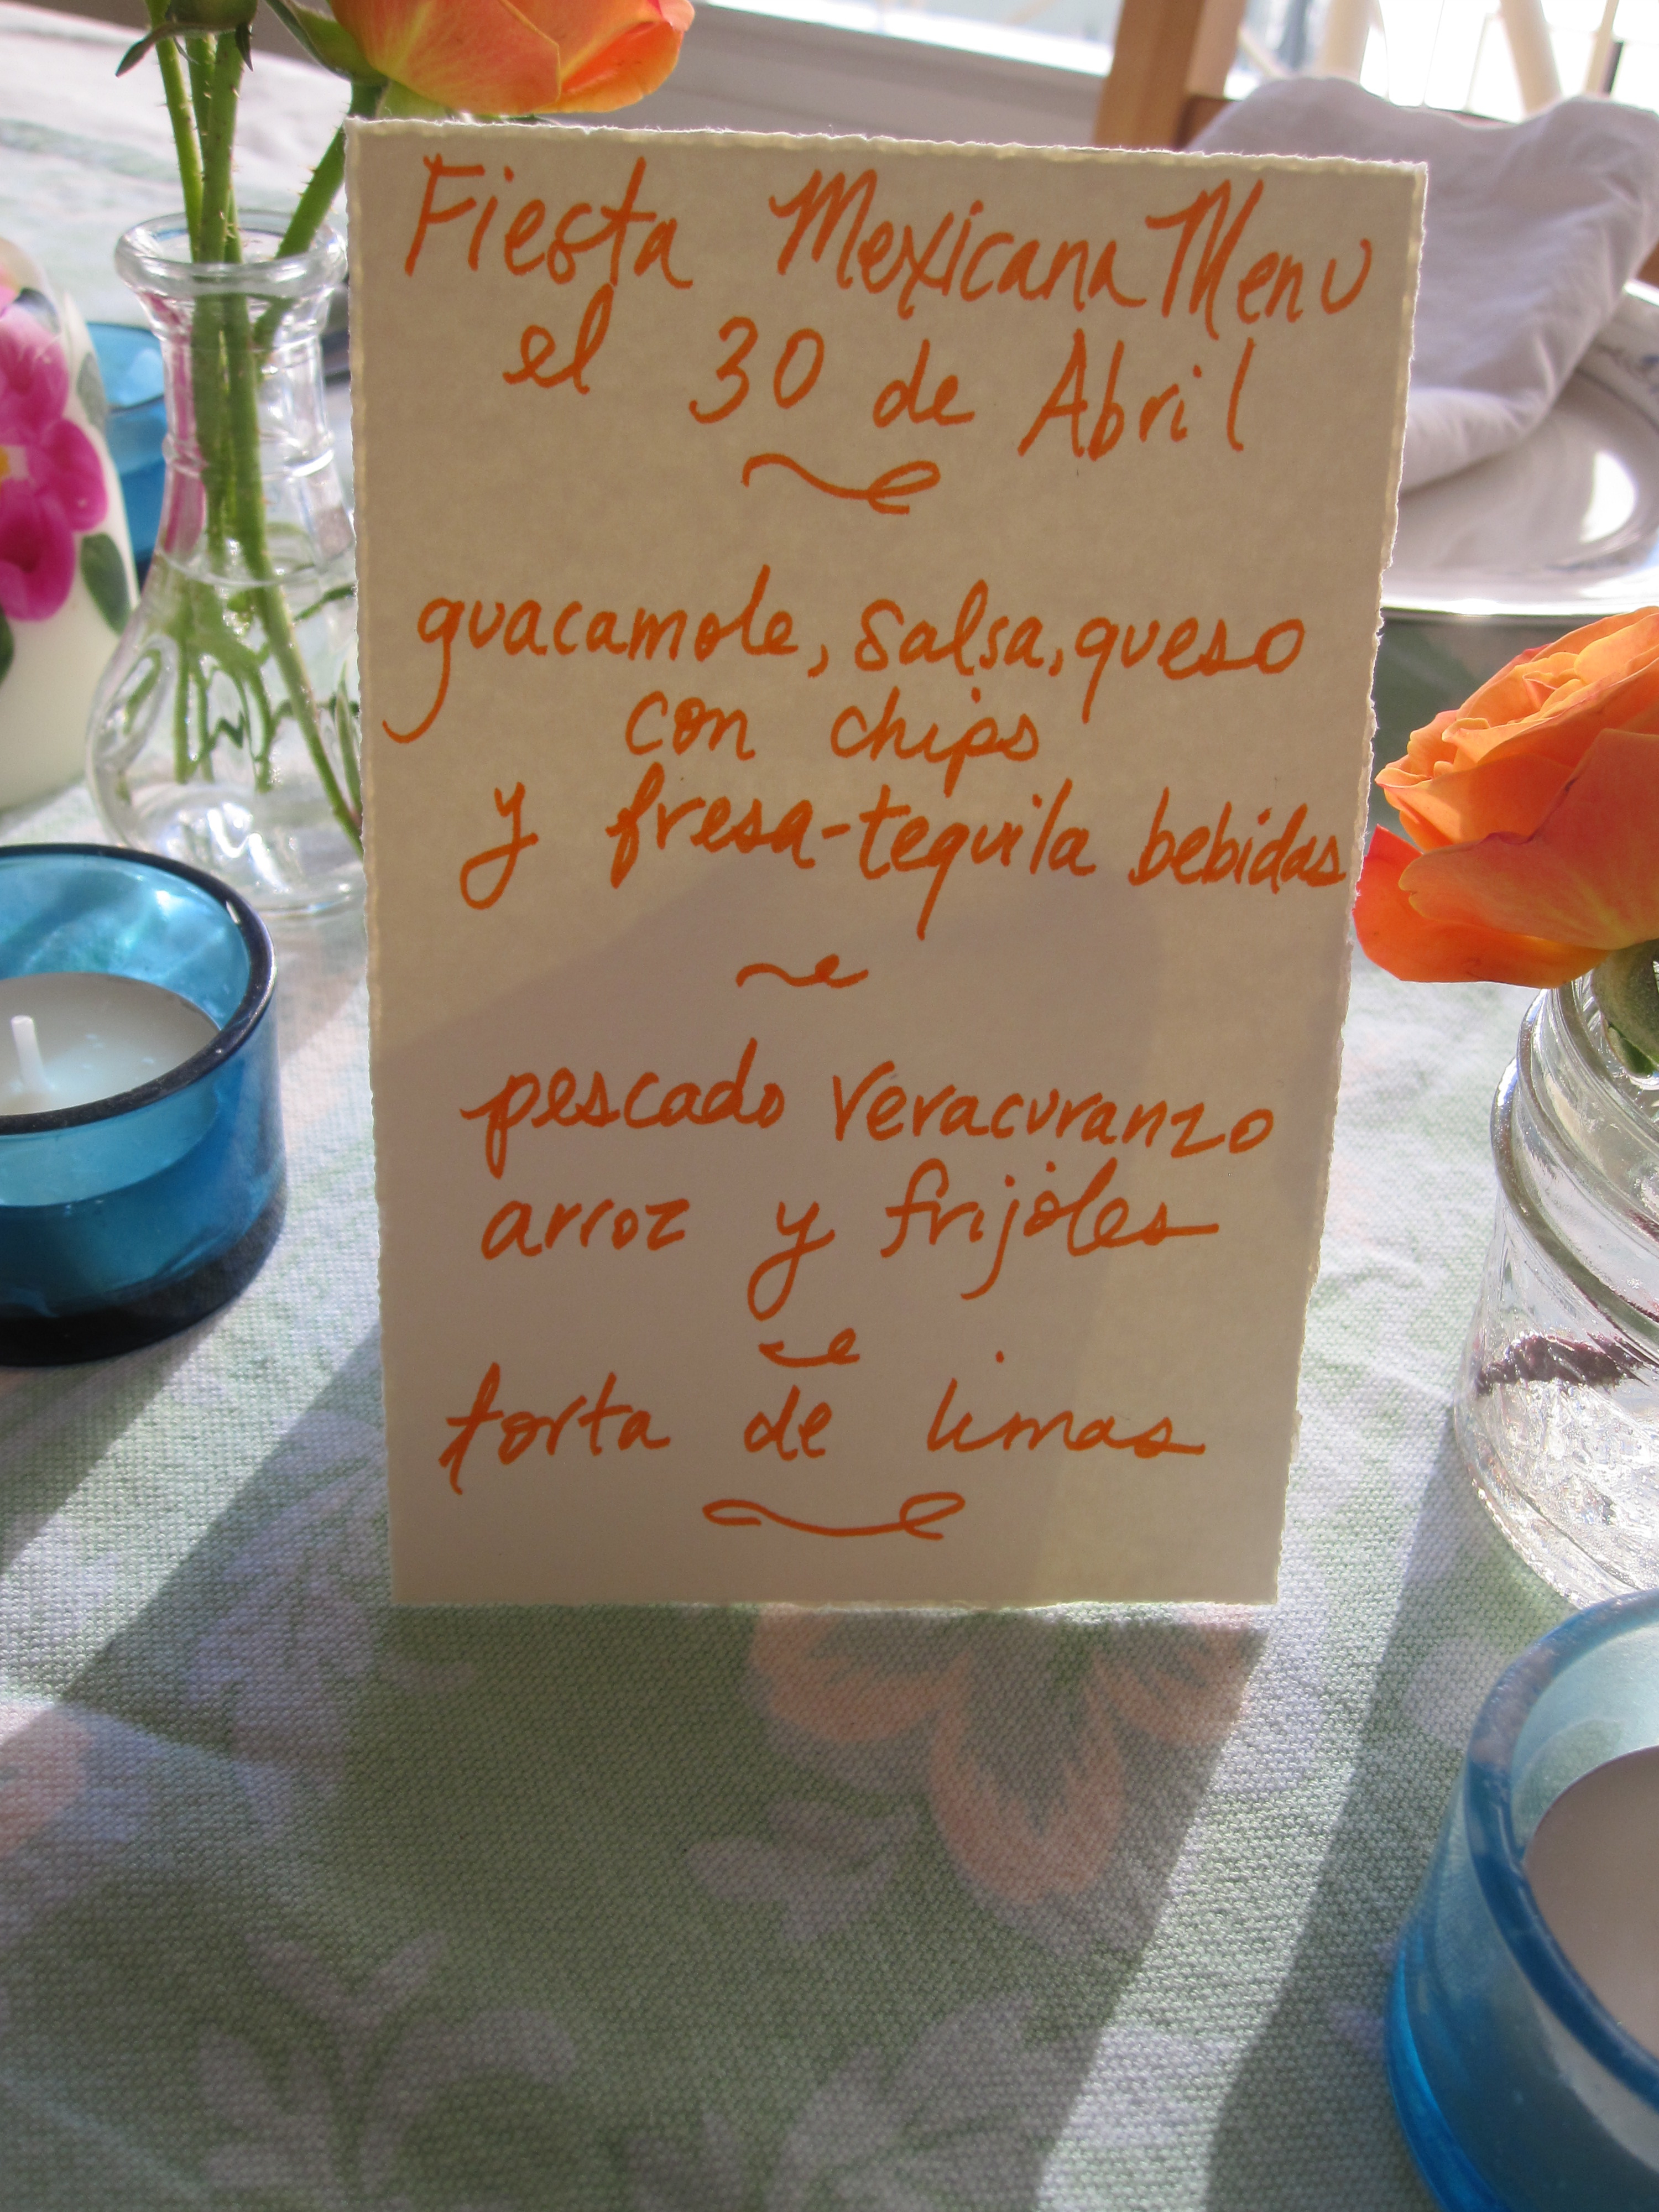 Fiesta Mexicana Menu
el 30 de Abril
guacamole, salsa, queso
con chips
y fresa-tequila bebidas
pescado veracuranzo
arroz y frijoles
torta de limas